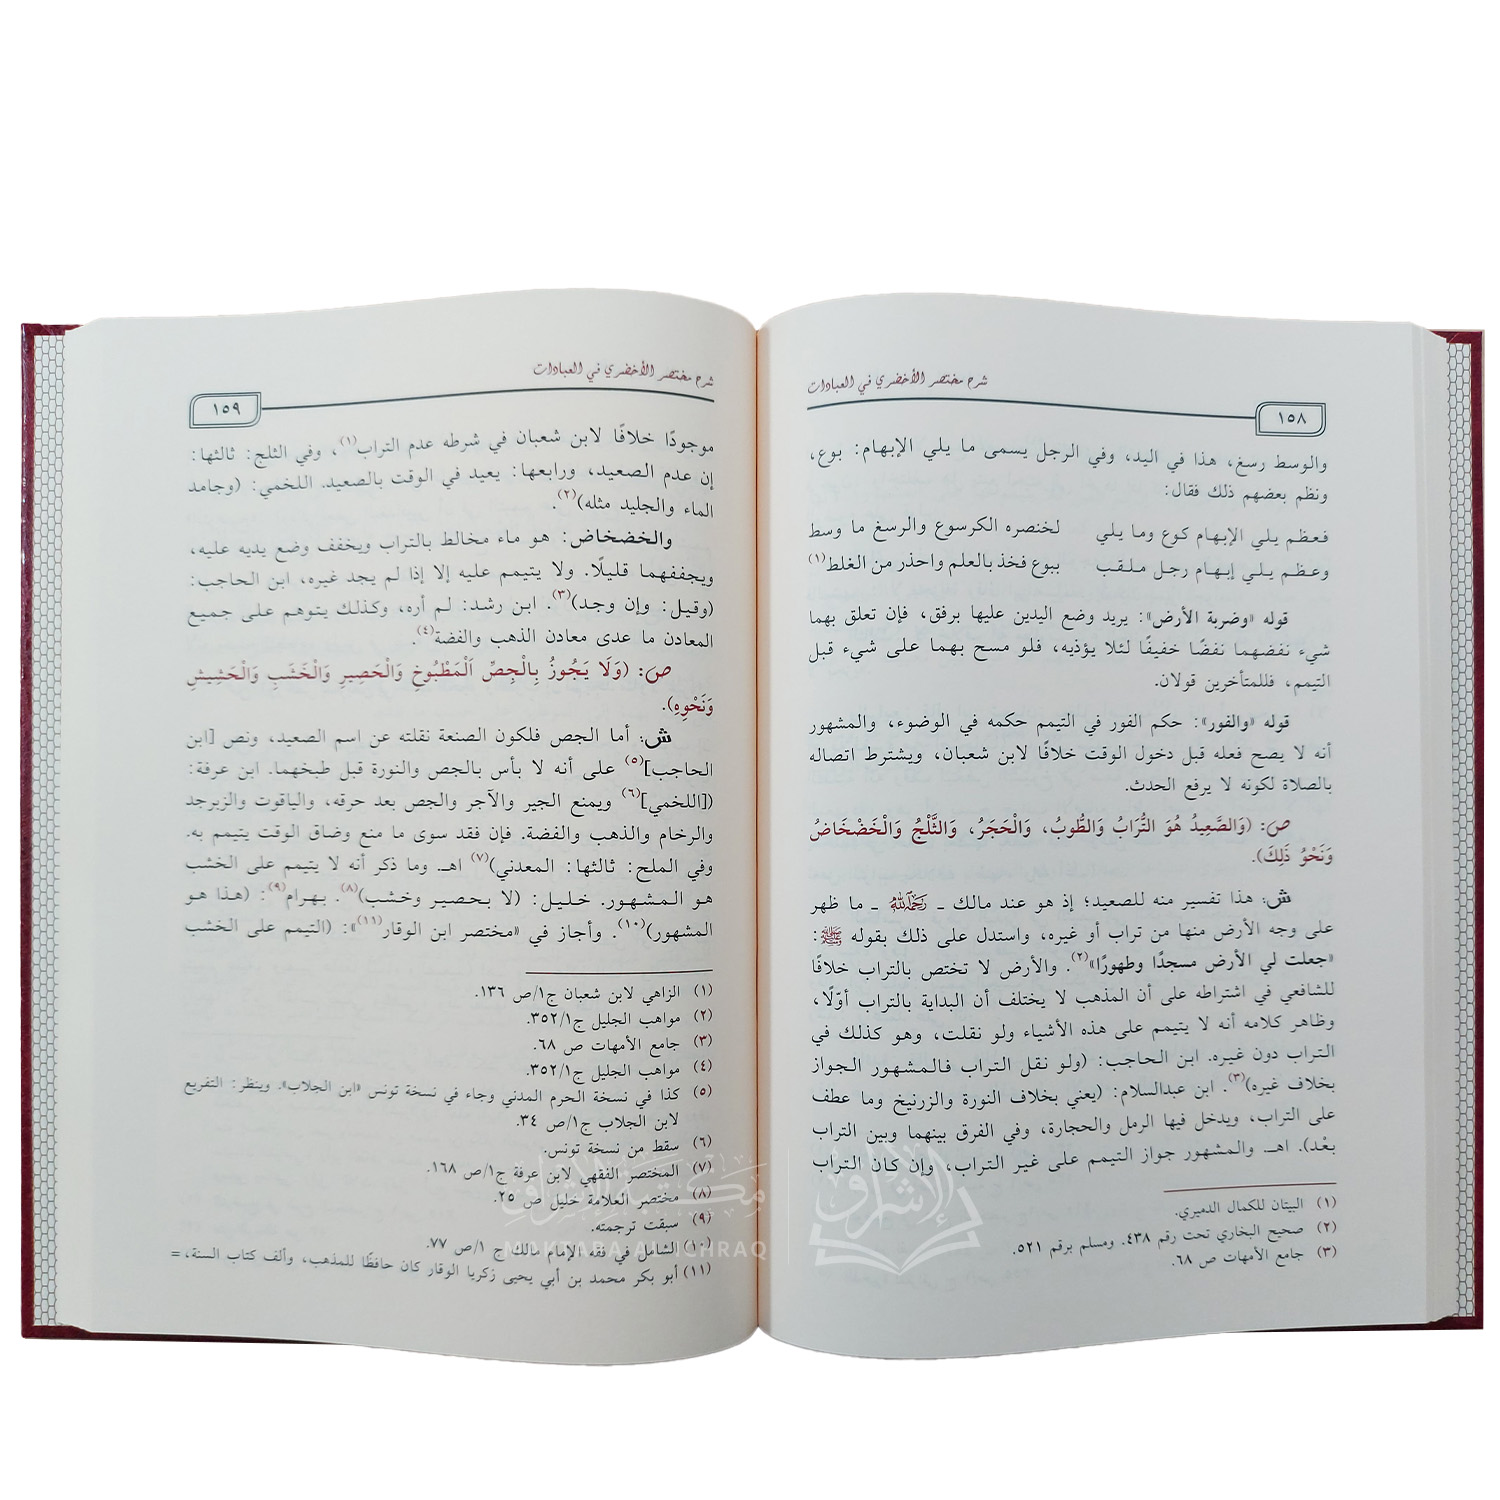 شرح مختصر الأخضري في العبادات
١٥٨
والوسط رسغ، هذا في اليد، وفي الرجل يسمى ما يلي الإبهام: بوع،
ونظم بعضهم ذلك فقال:
فعظم يلي الإبهام كوع وما يلي لخنصره الكرسوع والرسغ ما وسط
وعظم يلي إبهام رجل ملقب ببوع فخذ بالعلم واحذر من الغلط(١)
قوله «وضربة الأرض»: يريد وضع اليدين عليها برفق، فإن تعلق بهما
شيء نفضهما نفضًا خفيفًا لئلا يؤذيه، فلو مسح بهما على شيء قبل
التيمم، فللمتأخرين قولان.
قوله «والفور»: حكم الفور في التيمم حكمه في الوضوء، والمشهور
أنه لا يصح فعله قبل دخول الوقت خلافًا لابن شعبان، ويشترط اتصاله
بالصلاة لكونه لا يرفع الحدث.
ص: (وَالصَّعِيدُ هُوَ التُّرَابُ وَالطُّوبُ، وَالْحَجَرُ، وَالثَّلْجُ وَالْخَضْخَاضُ
وَنَحْوُ ذَلِكَ).
ش: هذا تفسير منه للصعيد؛ إذ هو عند مالك ـ رَحِمَهُ اللَّهُ ـ ما ظهر
على وجه الأرض منها من تراب أو غيره، واستدل على ذلك بقوله ﷺ:
«جعلت لي الأرض مسجدًا وطهورًا»(٢). والأرض لا تختص بالتراب خلافًا
للشافعي في اشتراطه على أن المذهب لا يختلف أن البداية بالتراب أوّلًا،
وظاهر كلامه أنه لا يتيمم على هذه الأشياء ولو نقلت، وهو كذلك في
التراب دون غيره. ابن الحاجب: (ولو نقل التراب فالمشهور الجواز
بخلاف غيره)(٣). ابن عبدالسلام: (يعني بخلاف النورة والزرنيخ وما عطف
على التراب، ويدخل فيها الرمل والحجارة، وفي الفرق بينهما وبين التراب
بعْد). اهـ. والمشهور جواز التيمم على غير التراب، وإن كان التراب
(١) البيتان للكمال الدميري.
(٢) صحيح البخاري تحت رقم ٤٣٨. ومسلم برقم ٥٢١.
(٣) جامع الأمهات ص ٦٨.
شرح مختصر الأخضري في العبادات
١٥٩
موجودًا خلافًا لابن شعبان في شرطه عدم التراب(١)، وفي الثلج: ثالثها:
إن عدم الصعيد، ورابعها: يعيد في الوقت بالصعيد. اللخمي: (وجامد
الماء والجليد مثله)(٢).
والخضخاض: هو ماء مخالط بالتراب ويخفف وضع يديه عليه،
ويجففهما قليلًا. ولا يتيمم عليه إلا إذا لم يجد غيره، ابن الحاجب:
(وقيل: وإن وجد)(٣). ابن رشد: لم أره، وكذلك يتوهم على جميع
المعادن ما عدى معادن الذهب والفضة(٤).
ص: (وَلَا يَجُوزُ بِالْجِصِّ الْمَطْبُوخِ وَالْحَصِيرِ وَالْخَشَبِ وَالْحَشِيشِ
وَنَحْوِهِ).
ش: أما الجص فلكون الصنعة نقلته عن اسم الصعيد، ونص [ابن
الحاجب](٥) على أنه لا بأس بالجص والنورة قبل طبخهما. ابن عرفة:
([اللخمي](٦) ويمنع الجير والآجر والجص بعد حرقه، والياقوت والزبرجد
والرخام والذهب والفضة. فإن فقد سوى ما منع وضاق الوقت يتيمم به.
وفي الملح: ثالثها: المعدني)(٧) اهـ. وما ذكر أنه لا يتيمم على الخشب
هو المشهور. خليل: (لا بحصير وخشب)(٨). بهرام(٩): (هذا هو
المشهور)(١٠). وأجاز في «مختصر ابن الوقار(١١)»: (التيمم على الخشب
(١) الزاهي لابن شعبان ج١/ص ١٣٦.
(٢) مواهب الجليل ج٣٥٢/١.
(٣) جامع الأمهات ص ٦٨.
(٤) مواهب الجليل ج٣٥٢/١.
(٥) كذا في نسخة الحرم المدني وجاء في نسخة تونس «ابن الجلاب». وينظر: التفريع
لابن الجلاب ج١/ص ٣٤.
(٦) سقط من نسخة تونس.
(٧) المختصر الفقهي لابن عرفة ج١/ص ١٦٨.
(٨) مختصر العلامة خليل ص ٢٥.
(٩) سبقت ترجمته.
(١٠) الشامل في فقه الإمام مالك ج ١/ص ٧٧.
(١١) أبو بكر محمد بن أبي يحيى زكريا الوقار كان حافظًا للمذهب، وألف كتاب السنة، =
مكتبة الإشراق
MAKTABA AL ICHRAQ
الإشراق